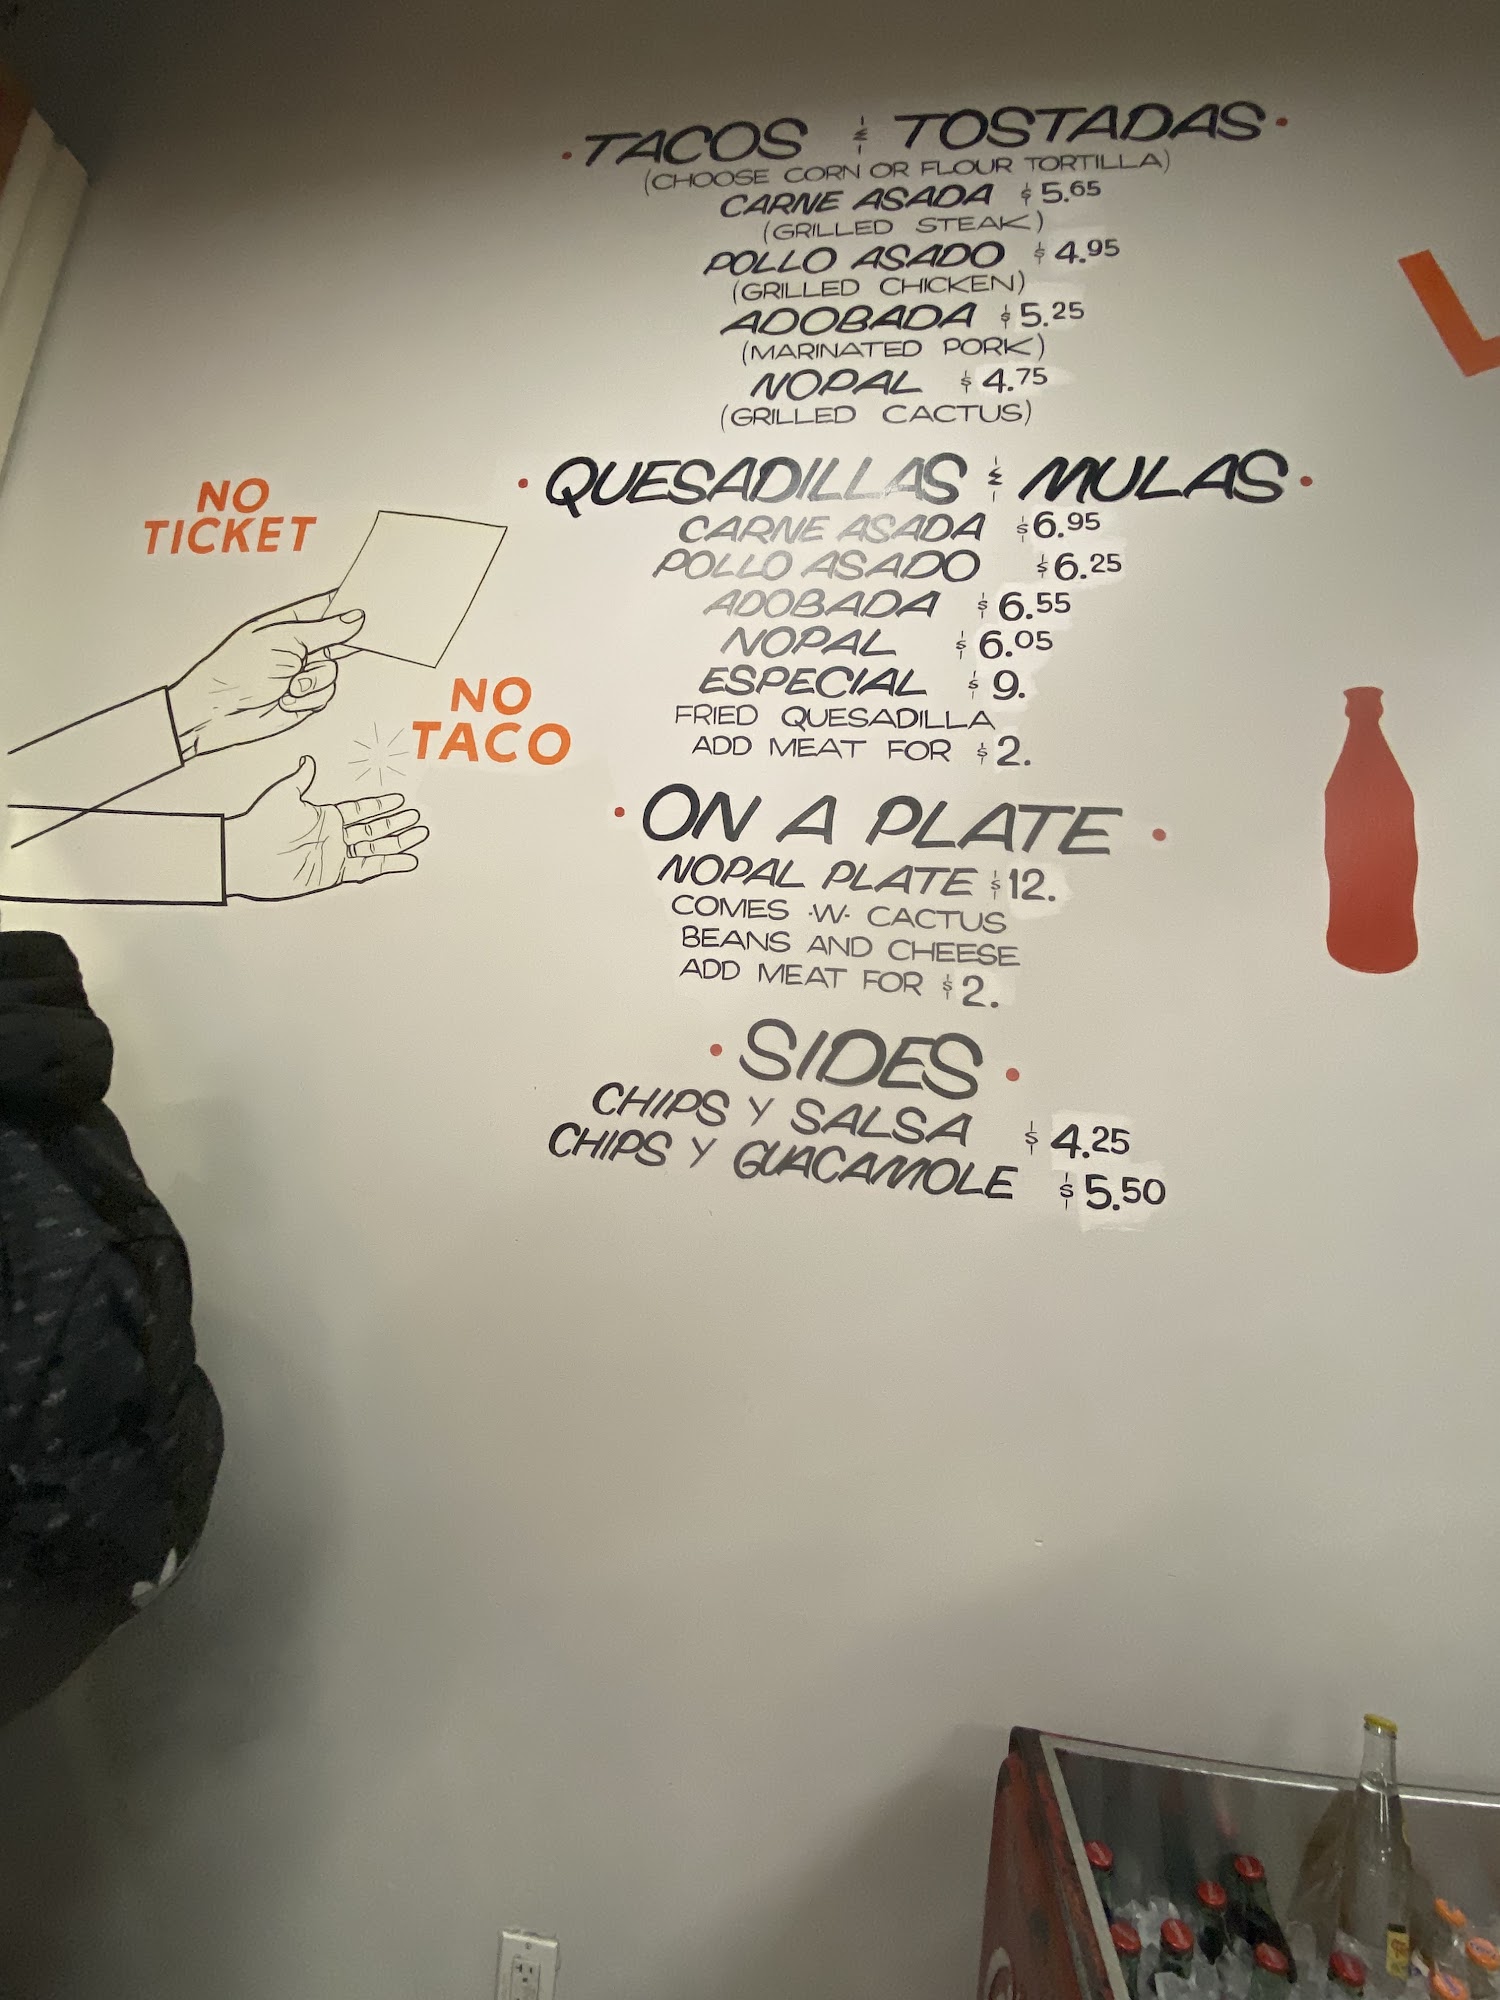 TACOS & TOSTADAS
(CHOOSE CORN OR FLOUR TORTILLA)
CARNE ASADA $5.65
(GRILLED STEAK)
POLLO ASADO $4.95
(GRILLED CHICKEN)
ADOBADA $5.25
(MARINATED PORK)
NOPAL $4.75
(GRILLED CACTUS)
QUESADILLAS & MULAS
CARNE ASADA $6.95
POLLO ASADO $6.25
ADOBADA $6.55
NOPAL $6.05
ESPECIAL $9.
FRIED QUESADILLA
ADD MEAT FOR $2.
ON A PLATE
NOPAL PLATE $12.
COMES -W- CACTUS
BEANS AND CHEESE
ADD MEAT FOR $2.
SIDES
CHIPS Y SALSA $4.25
CHIPS Y GUACAMOLE $5.50
NO
TICKET
NO
TACO